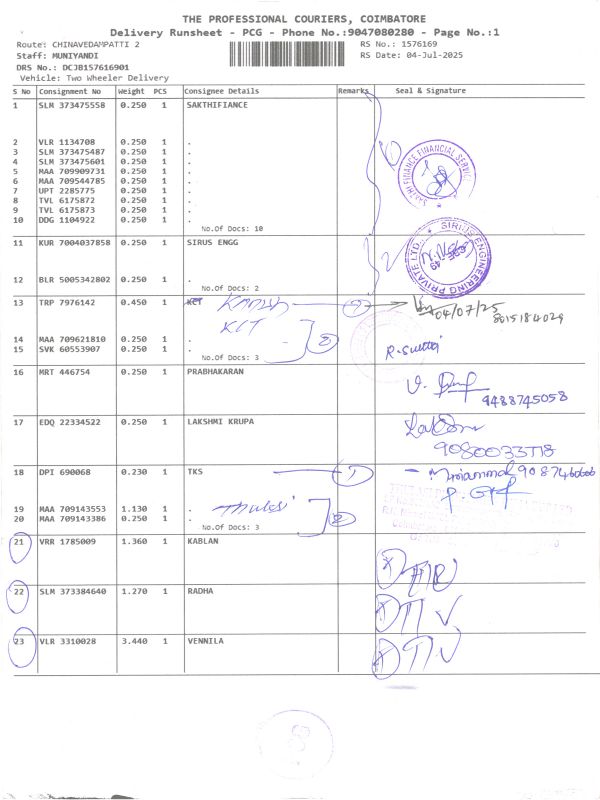 THE PROFESSIONAL COURIERS, COIMBATORE
Delivery Runsheet - PCG - Phone No.:9047080280 - Page No.:1
Route: CHINAVEDAMPATTI 2 RS No.: 1576169
Staff: MUNIYANDI RS Date: 04-Jul-2025
DRS No.: DCJB157616901
Vehicle: Two Wheeler Delivery
S No Consignment No Weight PCS Consignee Details Remarks Seal & Signature
1 SLM 373475558 0.250 1 SAKTHIFIANCE
2 VLR 1134708 0.250 1 .
3 SLM 373475487 0.250 1 .
4 SLM 373475601 0.250 1 .
5 MAA 709909731 0.250 1 .
6 MAA 709544785 0.250 1 .
7 UPT 2285775 0.250 1 .
8 TVL 6175872 0.250 1 .
9 TVL 6175873 0.250 1 .
10 DDG 1104922 0.250 1 .
No.Of Docs: 10
SAKTHI FINANCE FINANCIAL SERVIC
11 KUR 7004037858 0.250 1 SIRUS ENGG
12 BLR 5005342802 0.250 1 .
No.Of Docs: 2
2
SIRIUS ENGINEERING PRIVATE LTD.
13 TRP 7976142 0.450 1 KCT
1 04/07/25
8015184029
KCT
14 MAA 709621810 0.250 1 .
15 SVK 60553907 0.250 1 .
No.Of Docs: 3
2
16 MRT 446754 0.250 1 PRABHAKARAN
9488745058
17 EDQ 22334522 0.250 1 LAKSHMI KRUPA
9080033778
18 DPI 690068 0.230 1 TKS
1
19 MAA 709143553 1.130 1 .
20 MAA 709143386 0.250 1 .
No.Of Docs: 3
Thulasi 2
21 VRR 1785009 1.360 1 KABLAN
22 SLM 373384640 1.270 1 RADHA
23 VLR 3310028 3.440 1 VENNILA